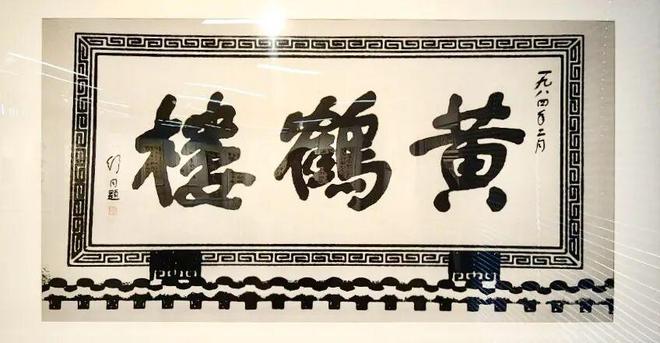 一九八四年二月
黄鶴樓
舒同题